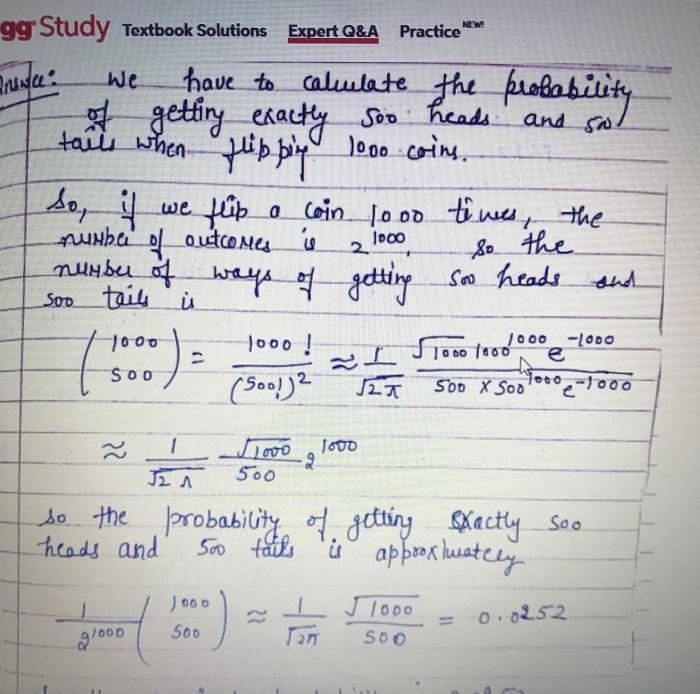 gg Study Textbook Solutions Expert Q&A Practice NEW!
Answer: We have to calculate the probability
of getting exactly 500 heads and 500
tails when flipping 1000 coins.
So, if we flip a coin 1000 times, the
number of outcomes is 2^1000, so the
number of ways of getting 500 heads and
500 tails is
(1000 500) = 1000! / (500!)^2 ≈ 1/√2π √1000 1000^1000 e^-1000 / 500 × 500^1000 e^-1000
≈ 1/√2π √1000/500 2^1000
so the probability of getting exactly 500
heads and 500 tails is approximately
1/2^1000 (1000 500) ≈ 1/√2π √1000/500 = 0.0252